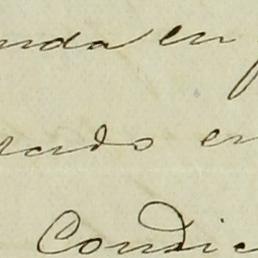 nda en
rado en
Condic